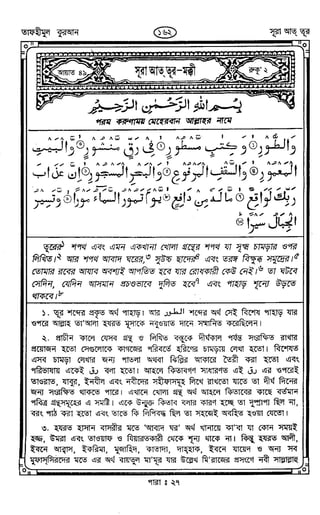 তাফহীমুল কুরআন
১৬২
সূরা আত্ তূর
আয়াত ৪৯
সূরা আত্ তূর-মক্কী
রুকূ' ২
بِسْمِ اللهِ الرَّحْمٰنِ الرَّحِيْمِ
পরম করুণাময় মেহেরবান আল্লাহর নামে
وَالطُّوْرِ ① وَكِتٰبٍ مَّسْطُوْرٍ ② فِيْ رَقٍّ مَّنْشُوْرٍ ③ وَّالْبَيْتِ
الْمَعْمُوْرِ ④ وَالسَّقْفِ الْمَرْفُوْعِ ⑤ وَالْبَحْرِ الْمَسْجُوْرِ ⑥ اِنَّ عَذَابَ
رَبِّكَ لَوَاقِعٌ ⑦ مَّا لَهٗ مِنْ دَافِعٍ ⑧ يَّوْمَ تَمُوْرُ السَّمَآءُ مَوْرًا ⑨ وَّتَسِيْرُ
الْجِبَالُ سَيْرًا ⑩
তূরের১ শপথ এবং এমন একখানা খোলা গ্রন্থের শপথ যা সূক্ষ্ম চামড়ার ওপর
লিখিত।২ আর শপথ আবাদ ঘরের,৩ সুউচ্চ ছাদের৪ এবং তরঙ্গ বিক্ষুব্ধ সমুদ্রের।৫
তোমার রবের আযাব অবশ্যই আপতিত হবে যার রোধকারী কেউ নেই।৬ তা ঘটবে
সেদিন, যেদিন আসমান প্রচণ্ডভাবে দুলিত হবে৭ এবং পাহাড় শূন্যে উড়তে
থাকবে।৮
১. তূর শব্দের প্রকৃত অর্থ পাহাড়। আর الطور শব্দের অর্থ সেই বিশেষ পাহাড় যার
ওপরে আল্লাহ তা'আলা হযরত মূসাকে নবুওয়াত দানে সম্মানিত করেছিলেন।
২. প্রাচীন কালে যেসব গ্রন্থ ও লিখিত বস্তুকে দীর্ঘকাল পর্যন্ত সংরক্ষিত রাখার
প্রয়োজন হতো সেগুলোকে কাগজের পরিবর্তে হরিণের চামড়ায় লেখা হতো। বিশেষত
এসব চামড়া লেখার জন্য পাতলা অথবা ঝিল্লির আকারে তৈরী করা হতো এবং
পরিভাষায় একেই رق বলা হতো। আহলে কিতাবগণ সাধারণত এই رق এর ওপরেই
তাওরাত, যাবুর, ইনযীল এবং নবীদের সহীফাসমূহ লিখে রাখতো যাতে তা দীর্ঘ দিনের
জন্য সংরক্ষিত থাকতে পারে। এখানে খোলা গ্রন্থ অর্থ আহলে কিতাবের কাছে বর্তমান
পবিত্র গ্রন্থসমূহের এ সমষ্টি। একে উন্মুক্ত কিতাব বলার কারণ হচ্ছে তা দুষ্প্রাপ্য ছিল না,
বরং পাঠ করা হতো এবং তাতে কি লিপিবদ্ধ ছিল তা সহজেই অবহিত হওয়া যেতো।
৩. হযরত হাসান বাসরীর মতে 'আবাদ ঘর' অর্থ খানায়ে কা'বা যা কোন সময়ই
হজ্জ, উমরা এবং তাওয়াফ ও যিয়ারতকারী থেকে শূন্য থাকে না। কিন্তু হযরত আলী,
ইবনে আব্বাস, ইকরিমা, মুজাহিদ, কাতাদা, দাহ্হাক, ইবনে যায়েদ ও অন্য সব
মুফাস্সিরদের মতে এর অর্থ বায়তুল মা'মূর যার উল্লেখ মি'রাজের প্রসংগে নবী সাল্লাল্লাহু
পারা : ২৭